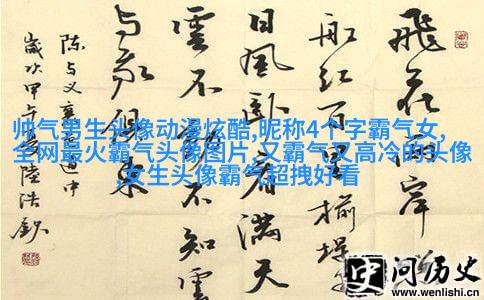 飛花两岸
船红百里榆堤
日風卧看满天
雲不動不知雲
与我俱東
陈与义襄邑道中
歲次甲午夏陸浩
帅气男生头像动漫炫酷,昵称4个字霸气女,
全网最火霸气头像图片,又霸气又高冷的头像
,女生头像霸气超拽好看
史问历史
www.wenlishi.cn